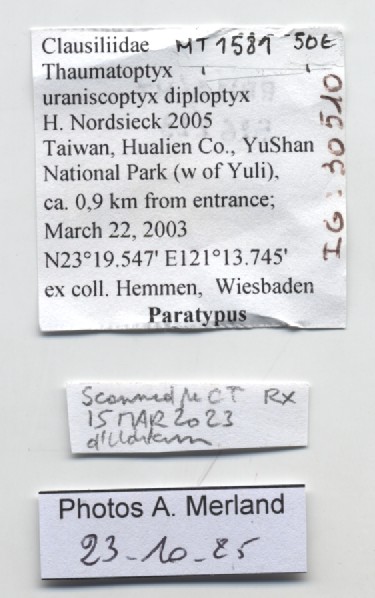 Clausiliidae MT 1581 50E
Thaumatoptyx
uraniscoptyx diploptyx
H. Nordsieck 2005
Taiwan, Hualien Co., YuShan
National Park (w of Yuli),
ca. 0,9 km from entrance;
March 22, 2003
N23°19.547' E121°13.745'
ex coll. Hemmen, Wiesbaden
Paratypus
IG: 30510
Scanned µCT RX
15 MAR 2023
Photos A. Merland
23-10-25